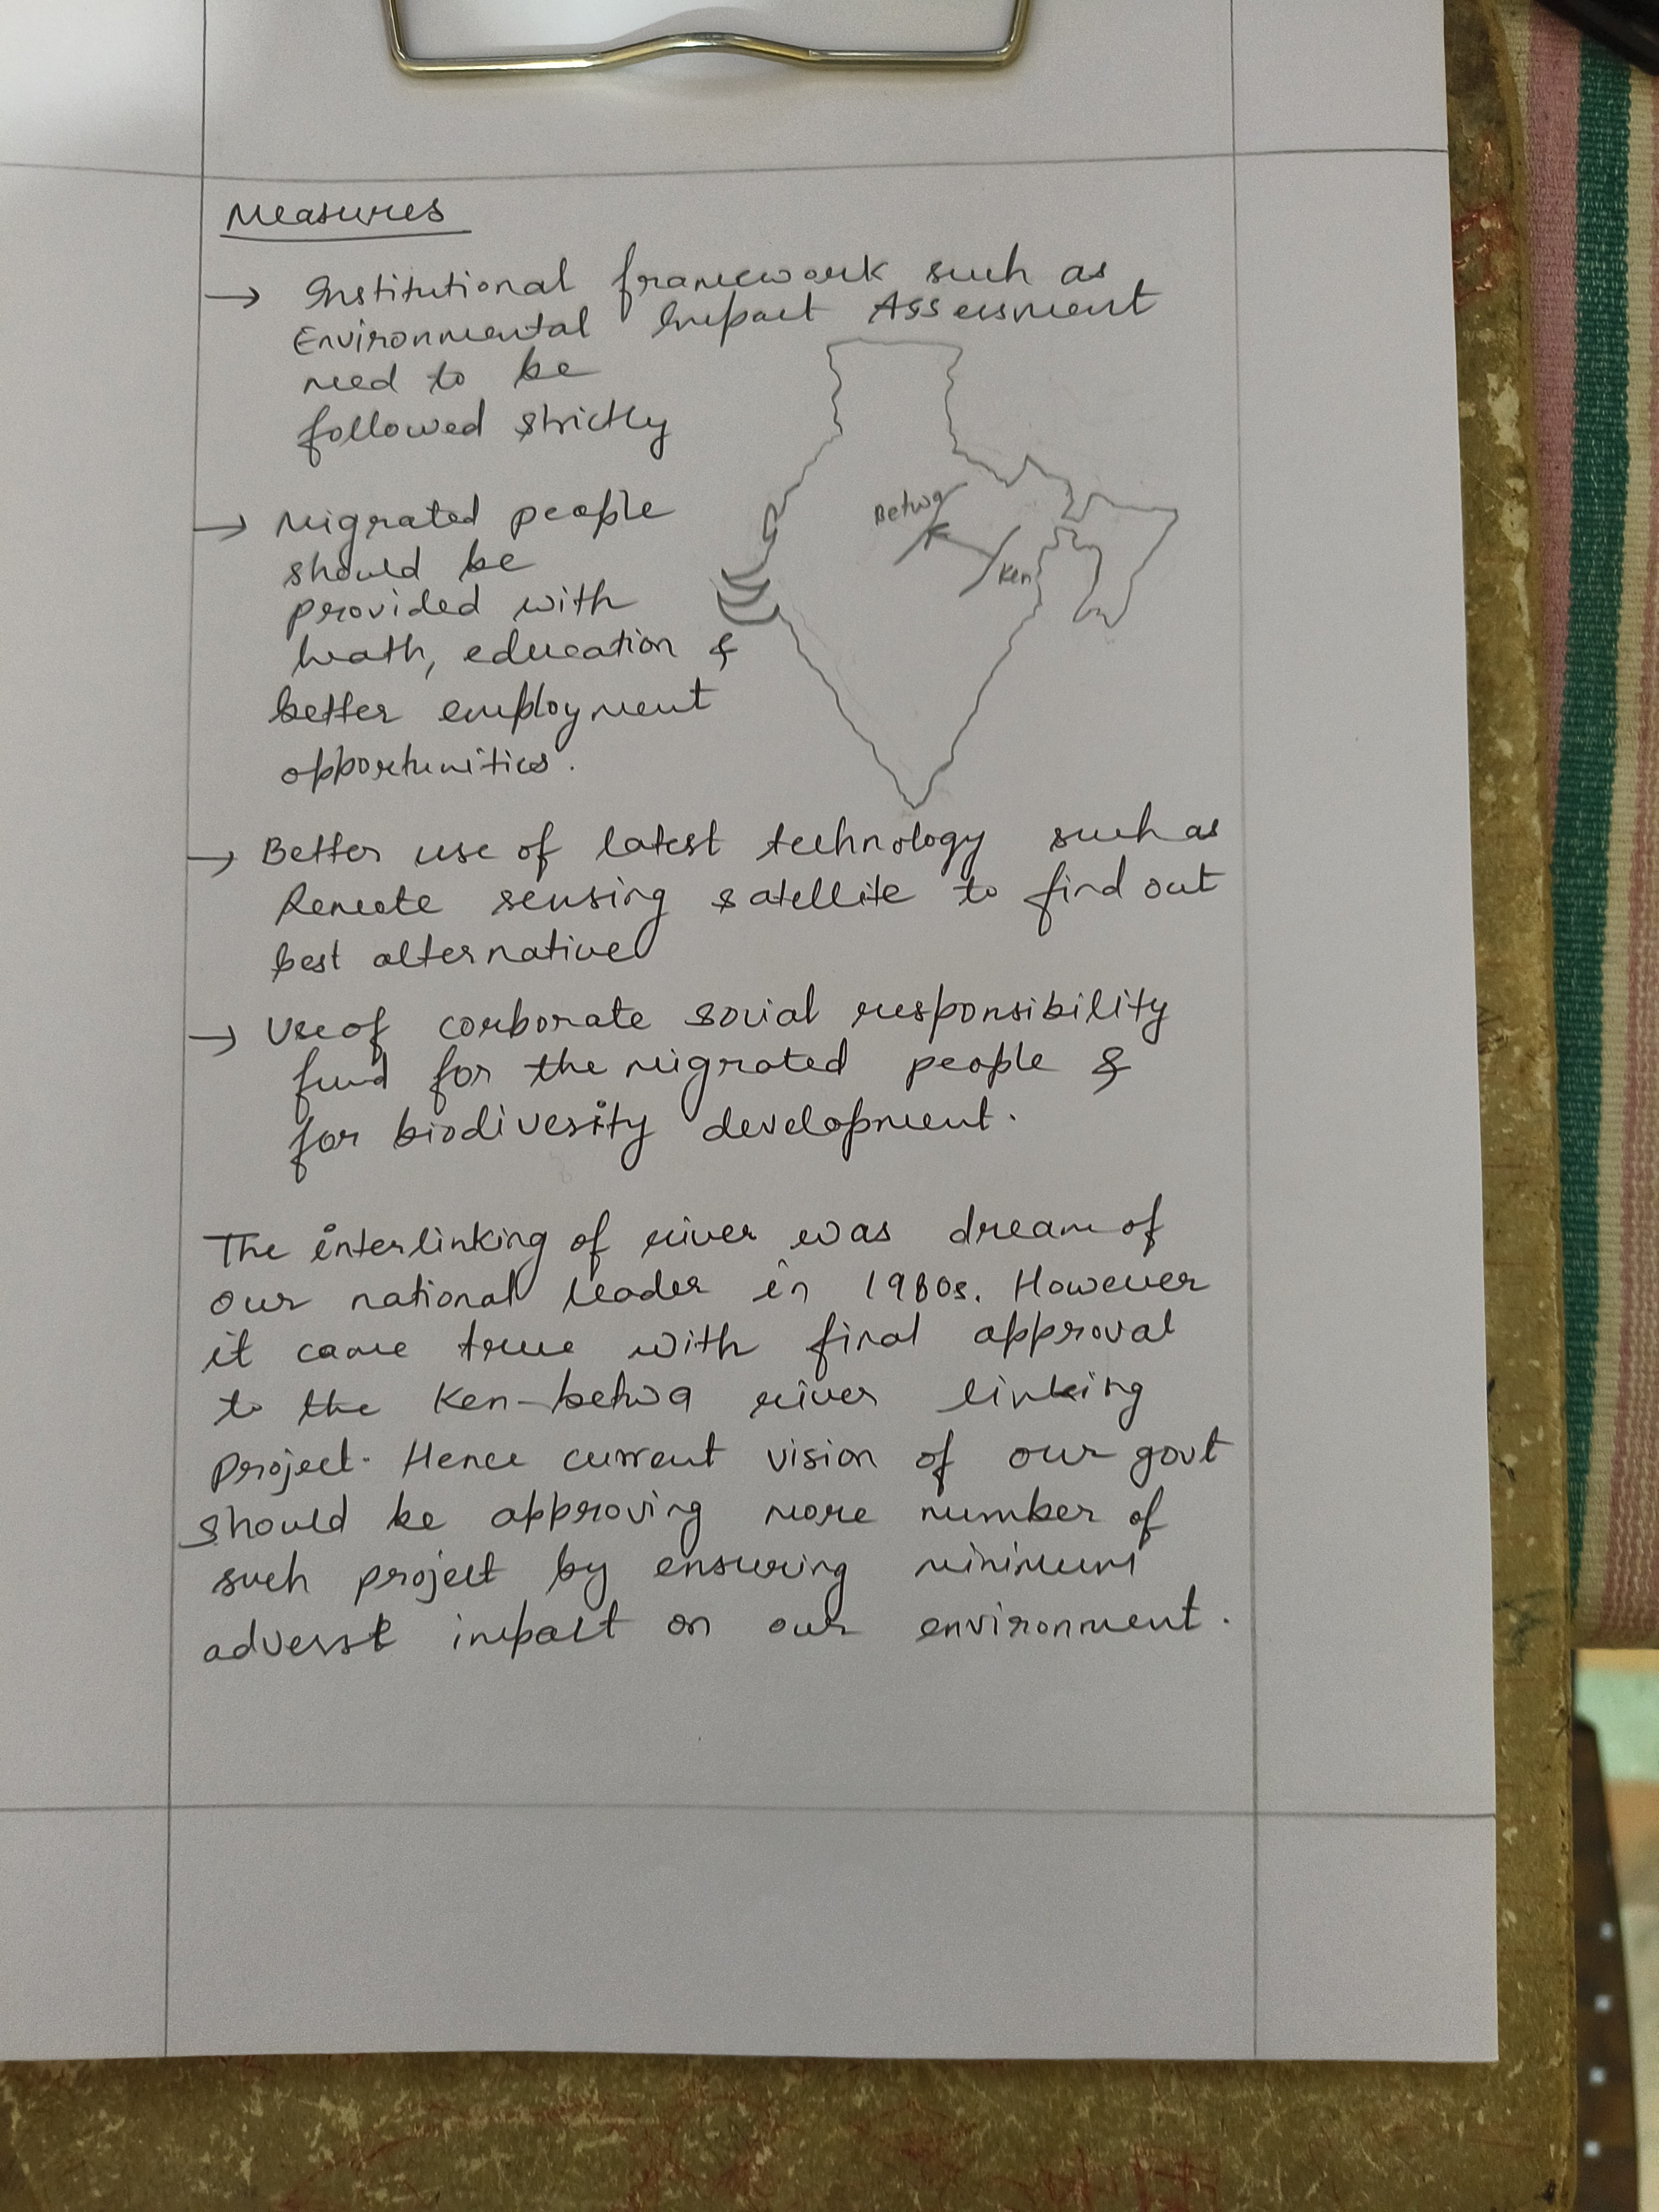 Measures
→ Institutional framework such as
Environmental Impact Assessment
need to be
followed strictly
→ Migrated people
should be
provided with
heath, education &
better employment
opportunities.
Betwa
Ken
→ Better use of latest technology such as
Remote sensing satellite to find out
best alternative
→ Use of corporate social responsibility
fund for the migrated people &
for biodivesity development.
The interlinking of river was dream of
our national leader in 1980s. However
it came true with final approval
to the Ken-betwa river linking
project. Hence current vision of our govt
should be approving more number of
such project by ensuring minimum
adverst impact on our environment.